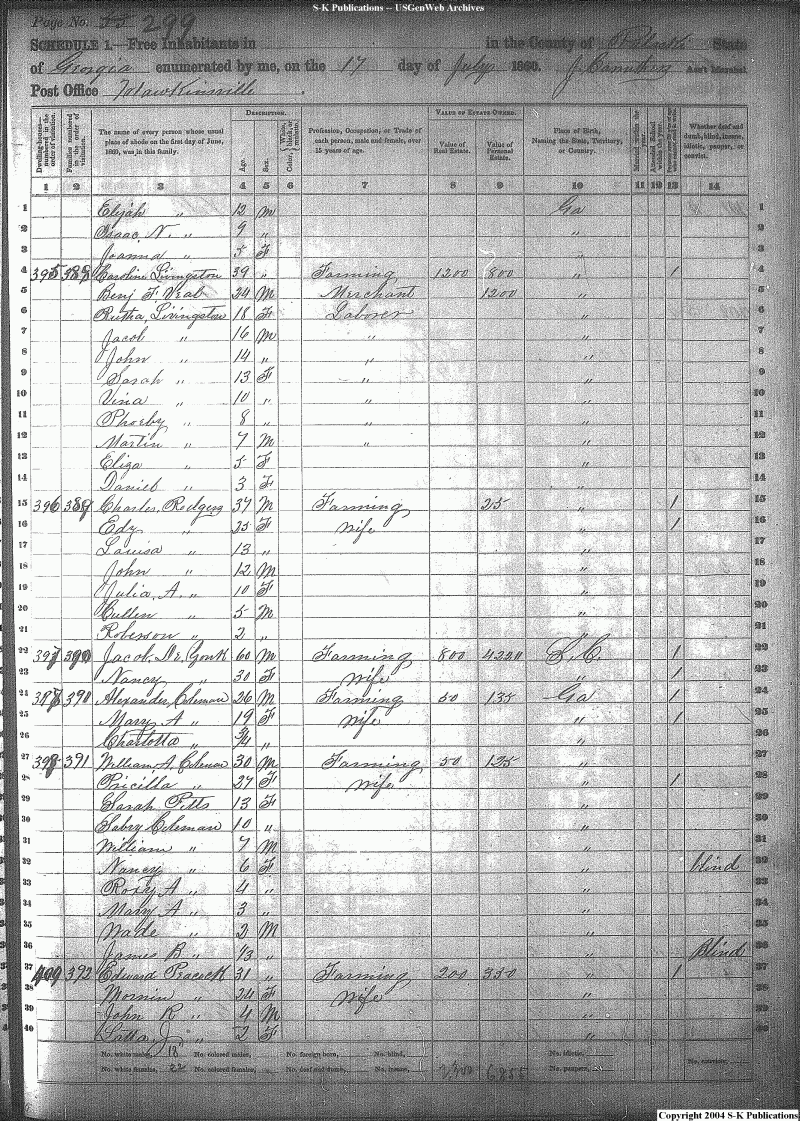 S-K Publications -- USGenWeb Archives
Page No. 55 299
SCHEDULE 1.—Free Inhabitants in in the County of Pulaski State
of Georgia enumerated by me, on the 17 day of July 1860. Ass't Marshal
Post Office Hawkinsville
DESCRIPTION. VALUE OF ESTATE OWNED.
Dwelling-houses—numbered in the order of visitation. Families numbered in the order of visitation. The name of every person whose usual place of abode on the first day of June, 1860, was in this family. Age. Sex. Color, White, black, or mulatto. Profession, Occupation, or Trade of each person, male and female, over 15 years of age. Value of Real Estate. Value of Personal Estate. Place of Birth, Naming the State, Territory, or Country. Married within the year. Attended School within the year. Whether deaf and dumb, blind, insane, idiotic, pauper, or convict.
1 2 3 4 5 6 7 8 9 10 11 12 13 14
1 Elijah " 12 M Ga 1
2 Isaac N. " 9 " " 2
3 Joanna " 5 F " 3
4 395 388 Caroline Livingston 39 " Farming 1200 800 " 1 4
5 Benj F Veal 24 M Merchant 1200 " 5
6 Rutha Livingston 18 F Laborer " 6
7 Jacob " 16 M " " 7
8 John " 14 " " " 8
9 Sarah " 13 F " " 9
10 Vina " 10 " " " 10
11 Phoeby " 8 " " " 11
12 Martin " 7 M " " 12
13 Eliza " 5 F " 13
14 Daniel " 3 F " 14
15 396 389 Charles Rodgers 37 M Farming 25 " 1 15
16 Edy " 25 F Wife " 1 16
17 Louisa " 13 " " 17
18 John " 12 M " 18
19 Julia A. " 10 F " 19
20 Cullen " 5 M " 20
21 Roberson " 2 " " 21
22 397 390 Jacob 60 M Farming 800 4220 S.C. 1 22
23 Nancy " 30 F Wife " 1 23
24 398 390 Alexander Coleman 26 M Farming 50 135 Ga 1 24
25 Mary A " 19 F Wife " 1 25
26 Charlotta " 3/4 " " 26
27 398 391 William A. Coleman 30 M Farming 50 125 " 27
28 Pricilla " 27 F Wife " 1 28
29 Sarah Pitts 13 F " 29
30 Sabry Coleman 10 " " 30
31 William " 7 M " 31
32 Nancy " 6 F " blind 32
33 Roxy A " 4 " " 33
34 Mary A " 3 " " 34
35 Wade " 2 M " 35
36 James B " 1/3 " " Blind 36
37 400 392 Edward Peacock 31 " Farming 200 350 " 1 37
38 Mornin " 24 F Wife " 38
39 John R " 4 M " 39
40 Lotta J " 2 F " 40
No. white males, 18 No. colored males, No. foreign born, No. blind, No. idiotic,
No. white females, 22 No. colored females, No. deaf and dumb, No. insane, 2300 6855 No. paupers, No. convicts,
Copyright 2004 S-K Publications